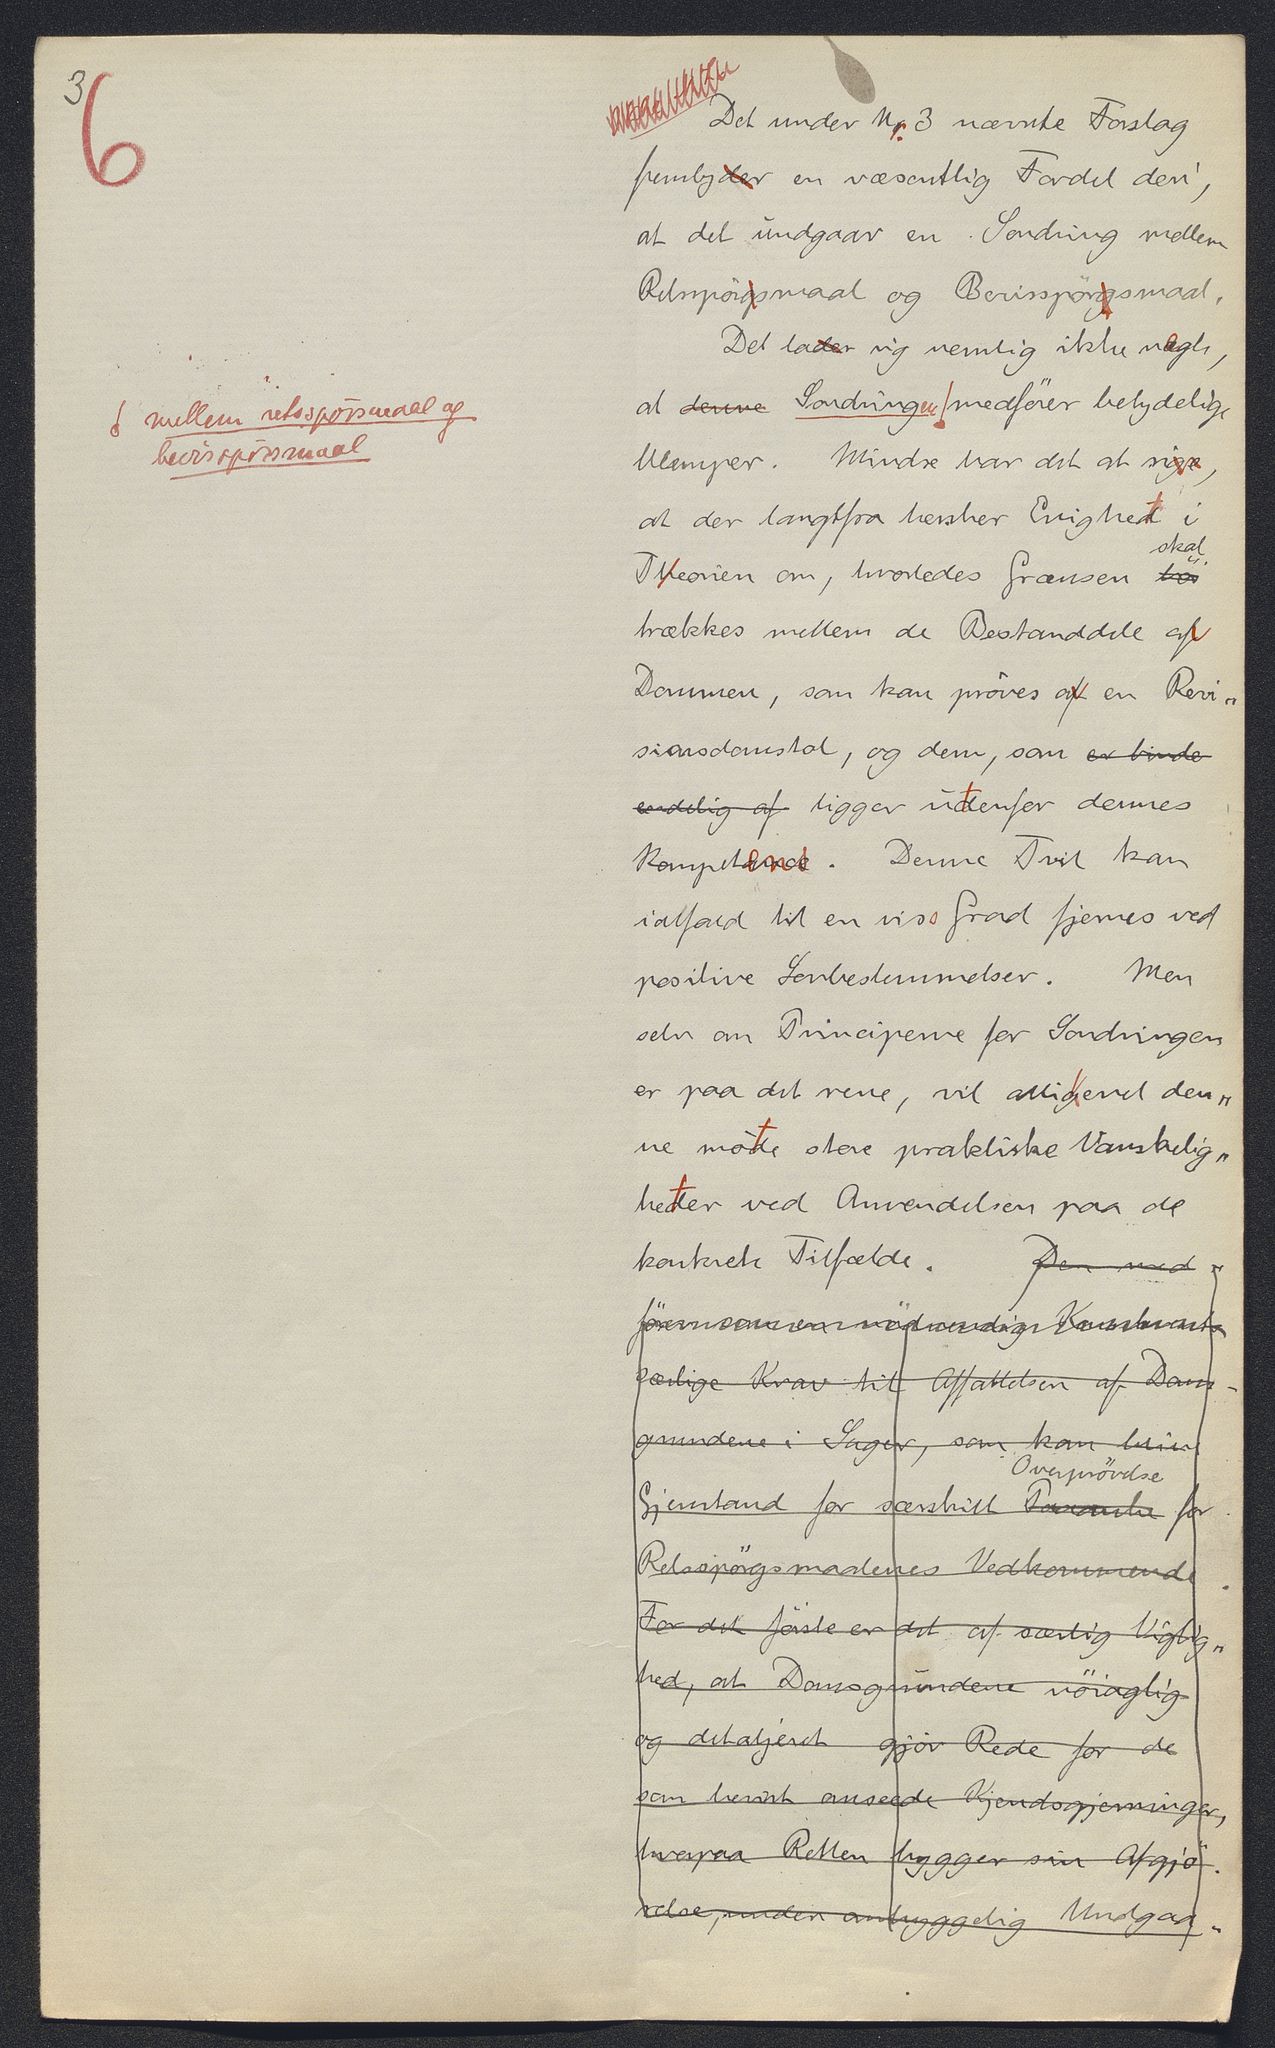 3
6
Det under Nr. 3 nævnte Forslag
frembyder en væsentlig Fordel deri,
at det undgaar en Sondring mellem
Retsspörgsmaal og Bevisspörgsmaal.
Det lader sig nemlig ikke negte,
mellem retsspörsmaal og
bevisspörsmaal
at denne Sondringen medförer betydelige
Ulemper. Mindre har det at sige,
at der langtfra hersker Enighet i
skal
Theorien om, hvorledes Grænsen bör
trækkes mellem de Bestanddele af
Dommen, som kan pröves af en Revi-
sionsdomstol, og dem, som er binde
endelig af ligger utenfor dennes
Kompetence. Denne Tvil kan
ialfald til en viss Grad fjernes ved
positive Lovbestemmelser. Men
selv om Principerne for Sondringen
er paa det rene, vil allikevel den-
ne möte store praktiske Vanskelig-
heter ved Anvendelsen paa de
konkrete Tilfælde. Den med-
förer som en nödvendig Konsekvents
særlige Krav til Affattelsen af Doms-
grundene i Sager, som kan blive
Overprövelse
Gjenstand for særskilt for
Retsspörgsmaalenes Vedkommende.
For det förste er det af særlig Vigtig-
hed, at Domsgrundene nöiagtig
og detaljeret gjör Rede for de
som bevist ansede Kjendsgjerninger,
hvorpaa Retten bygger sin Afgjö-
relse, under omhyggelig Undgaa-